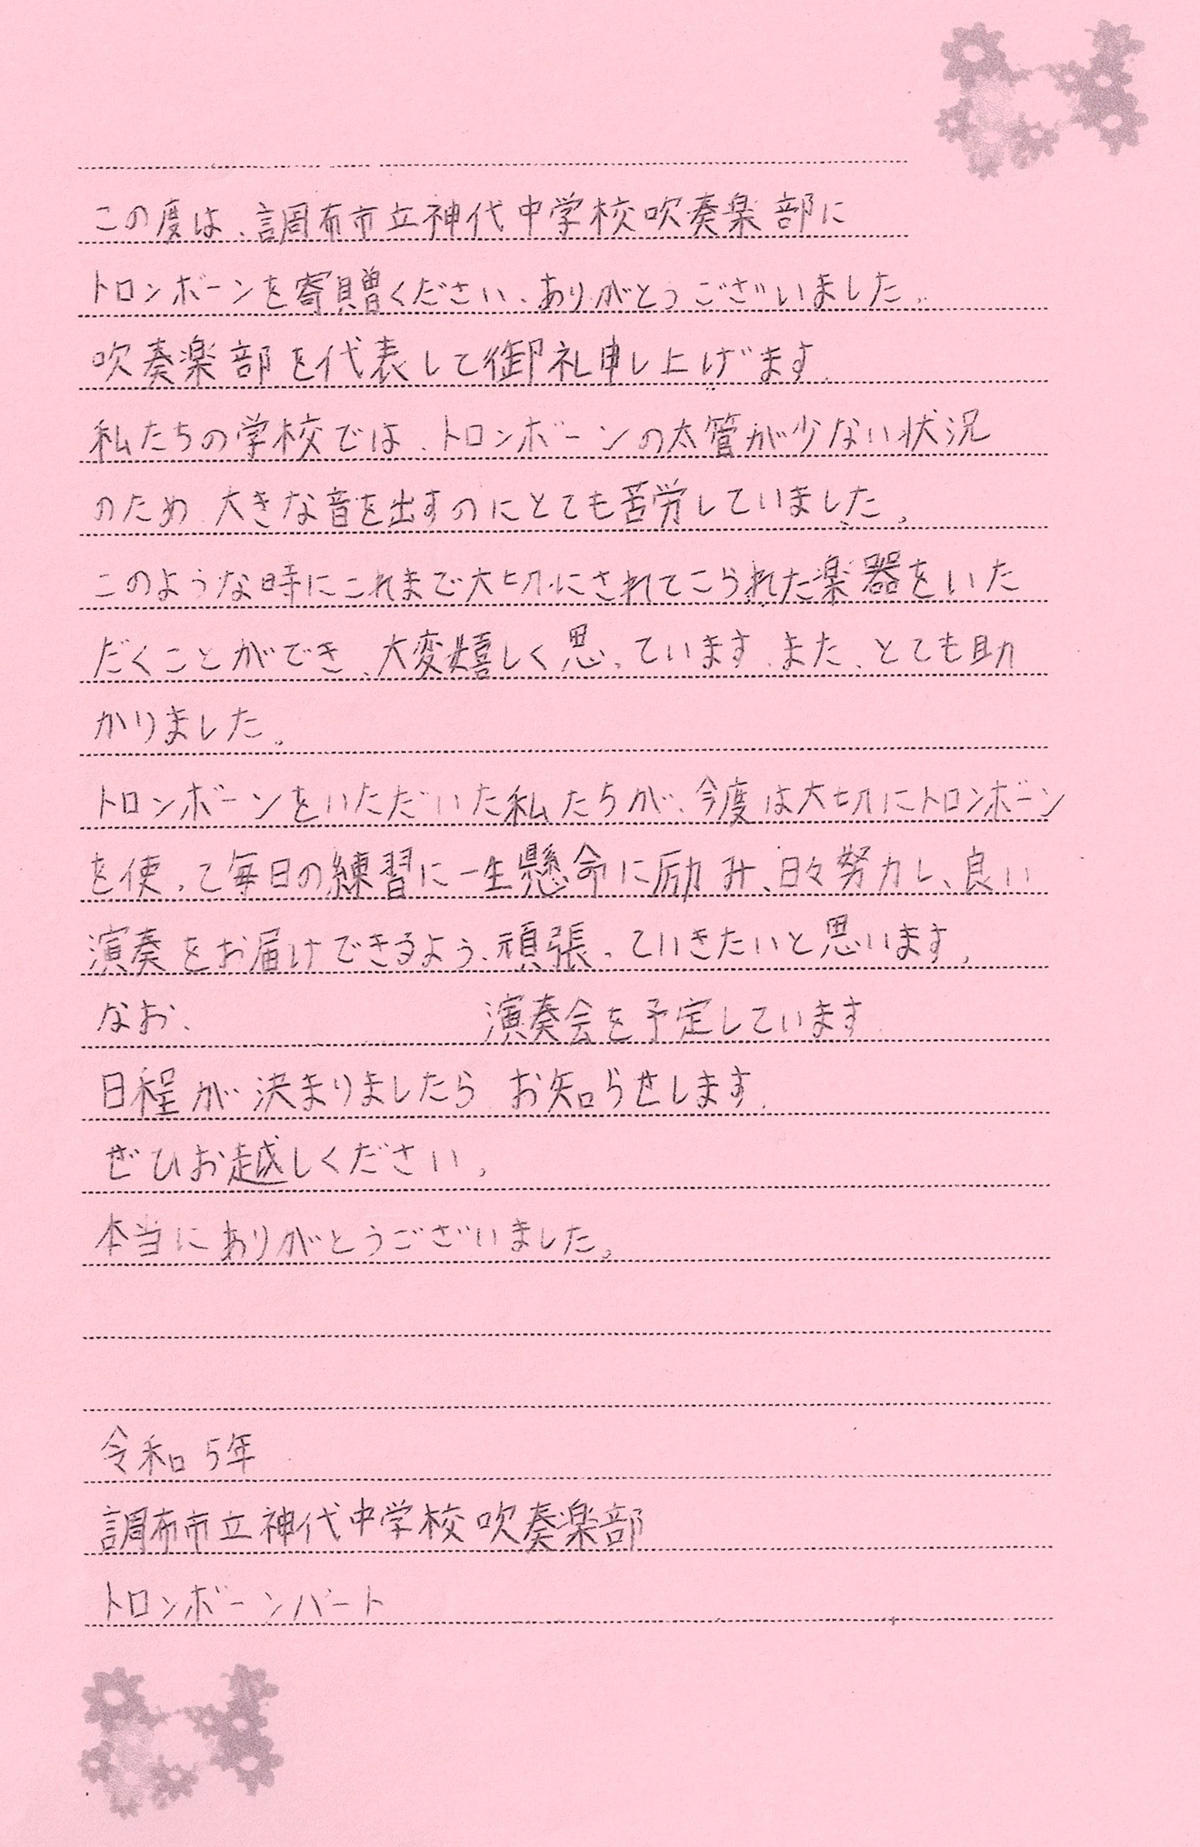 この度は、調布市立神代中学校吹奏楽部に
トロンボーンを寄贈ください、ありがとうございました。
吹奏楽部を代表して御礼申し上げます。
私たちの学校では、トロンボーンの太管が少ない状況
のため、大きな音を出すのにとても苦労していました。
このような時にこれまで大切にされてこられた楽器をいた
だくことができ、大変嬉しく思っています。また、とても助
かりました。
トロンボーンをいただいた私たちが、今度は大切にトロンボーン
を使って毎日の練習に一生懸命に励み、日々努力し、良い
演奏をお届けできるよう、頑張っていきたいと思います。
なお、演奏会を予定しています。
日程が決まりましたら、お知らせします。
ぜひお越しください。
本当にありがとうございました。
令和5年
調布市立神代中学校吹奏楽部
トロンボーンパート